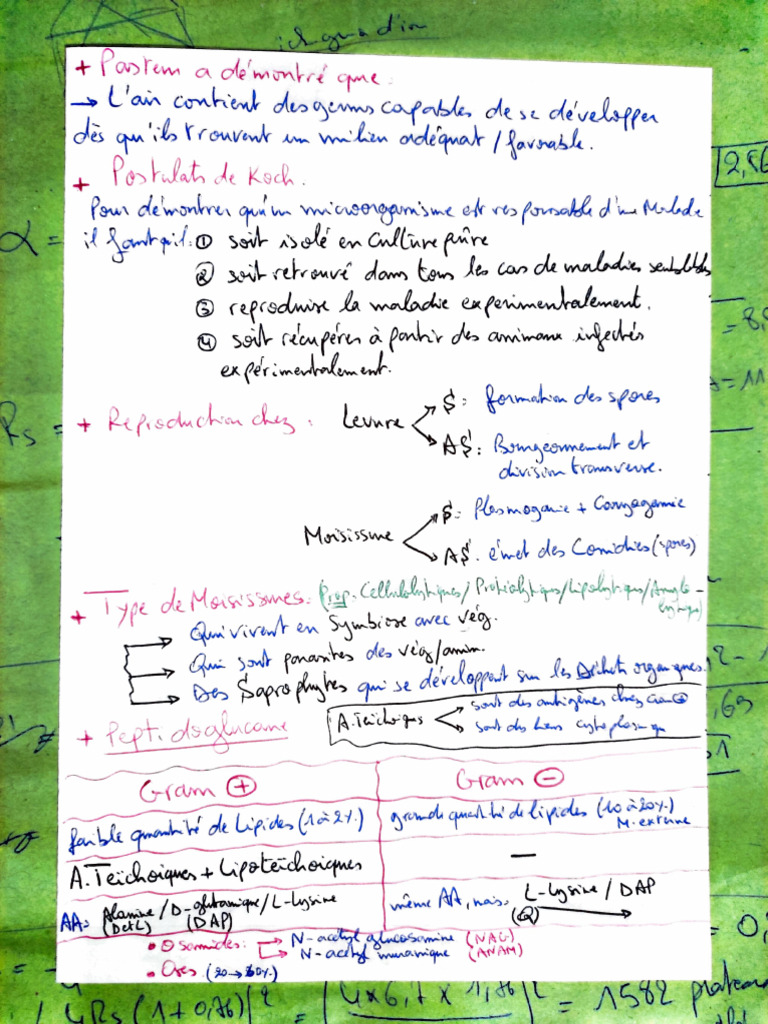 + Pasteur a démontré que:
→ L'air contient des germes capables de se développer
dès qu'ils trouvent un milieu adéquat / favorable.
+ Postulats de Koch.
Pour démontrer qu'un microorganisme est responsable d'une Maladie
il faut qu'il: ① soit isolé en culture pûre
② soit retrouvé dans tous les cas de maladies semblables
③ reproduise la maladie experimentalement.
④ soit récupéres à partir des animaux infectés
expérimentalement.
+ Reproduction chez: Levure
$: formation des spores
A$: Bourgeonnement et
division transverse.
Moisissure
$: Plasmogamie + Caryogamie
A$: émet des Conidies (spores)
+ Type de Moisissures: (Prop. Cellulolytiques / Protéolytiques / Lipolytiques / Amylo-
lytiques)
Qui vivent en Symbiose avec vég.
Qui sont parasites des vég/anim.
Des Saprophytes qui se développent sur les Déchets organiques.
A. Teichoiques
sont des antigènes chez Gram ⊕
sont des liens cytoplasmiq
+ Peptidoglucane
Gram ⊕
Gram ⊖
faible quantité de Lipides (1 à 2%)
grande quantité de lipides (10 à 20%)
M. externe
A. Teichoiques + Lipoteichoiques
—
AA: Alanine / D-glutamique / L-Lysine
(D et L) (DAP)
même AA, mais: L-Lysine / DAP
• Osamides:
N-acetyl glucosamine (NAG)
N-acetyl muramique (ANAM)
• Oses
2,86
α =
Rs =
4Rs (1+0,76)²
4 x 6,7 x 1,76
= 1582 plateaux